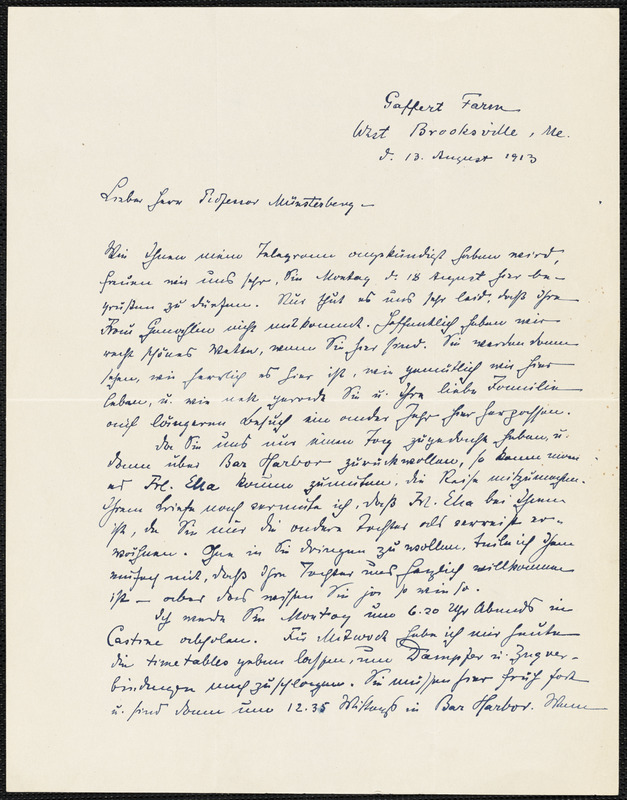 Gaffert Farm
West Brooksville, Me.
d. 13. August 1913
Lieber Herr Professor Münsterberg –
Wie Ihnen mein Telegramm angekündigt haben wird,
freuen wir uns sehr, Sie Montag d. 18 August hier be-
grüßen zu dürfen. Nur thut es uns sehr leid, daß Ihre
Frau Gemahlin nicht mitkommt. Hoffentlich haben wir
recht schönes Wetter, wenn Sie hier sind. Sie werden dann
sehen, wie herrlich es hier ist, wie gemütlich wir hier
leben, u. wie nett gerade Sie u. Ihre liebe Familie
auf längeren Besuch ein ander Jahr hier herpassen.
Da Sie uns nur einen Tag zugedacht haben, u.
dann über Bar Harbor zurückwollen, so kann man
es Frl. Ella kaum zumuten, die Reise mitzumachen.
Ihrem Briefe nach vermute ich, daß Frl. Ella bei Ihnen
ist, da Sie nur die andere Tochter als verreist er-
wähnen. Ohne in Sie dringen zu wollen, teile ich Ihnen
einfach mit, daß Ihre Tochter uns herzlich willkommen
ist – aber das wissen Sie ja so wie so.
Ich werde Sie Montag um 6.20 Uhr Abends in
Castine abholen. Für Mittwoch habe ich mir heute
die timetables geben lassen, um Dampfer u. Zugver-
bindungen nachzuschlagen. Sie müssen hier früh fort
u. sind dann um 12.35 Mittags in Bar Harbor. Wenn